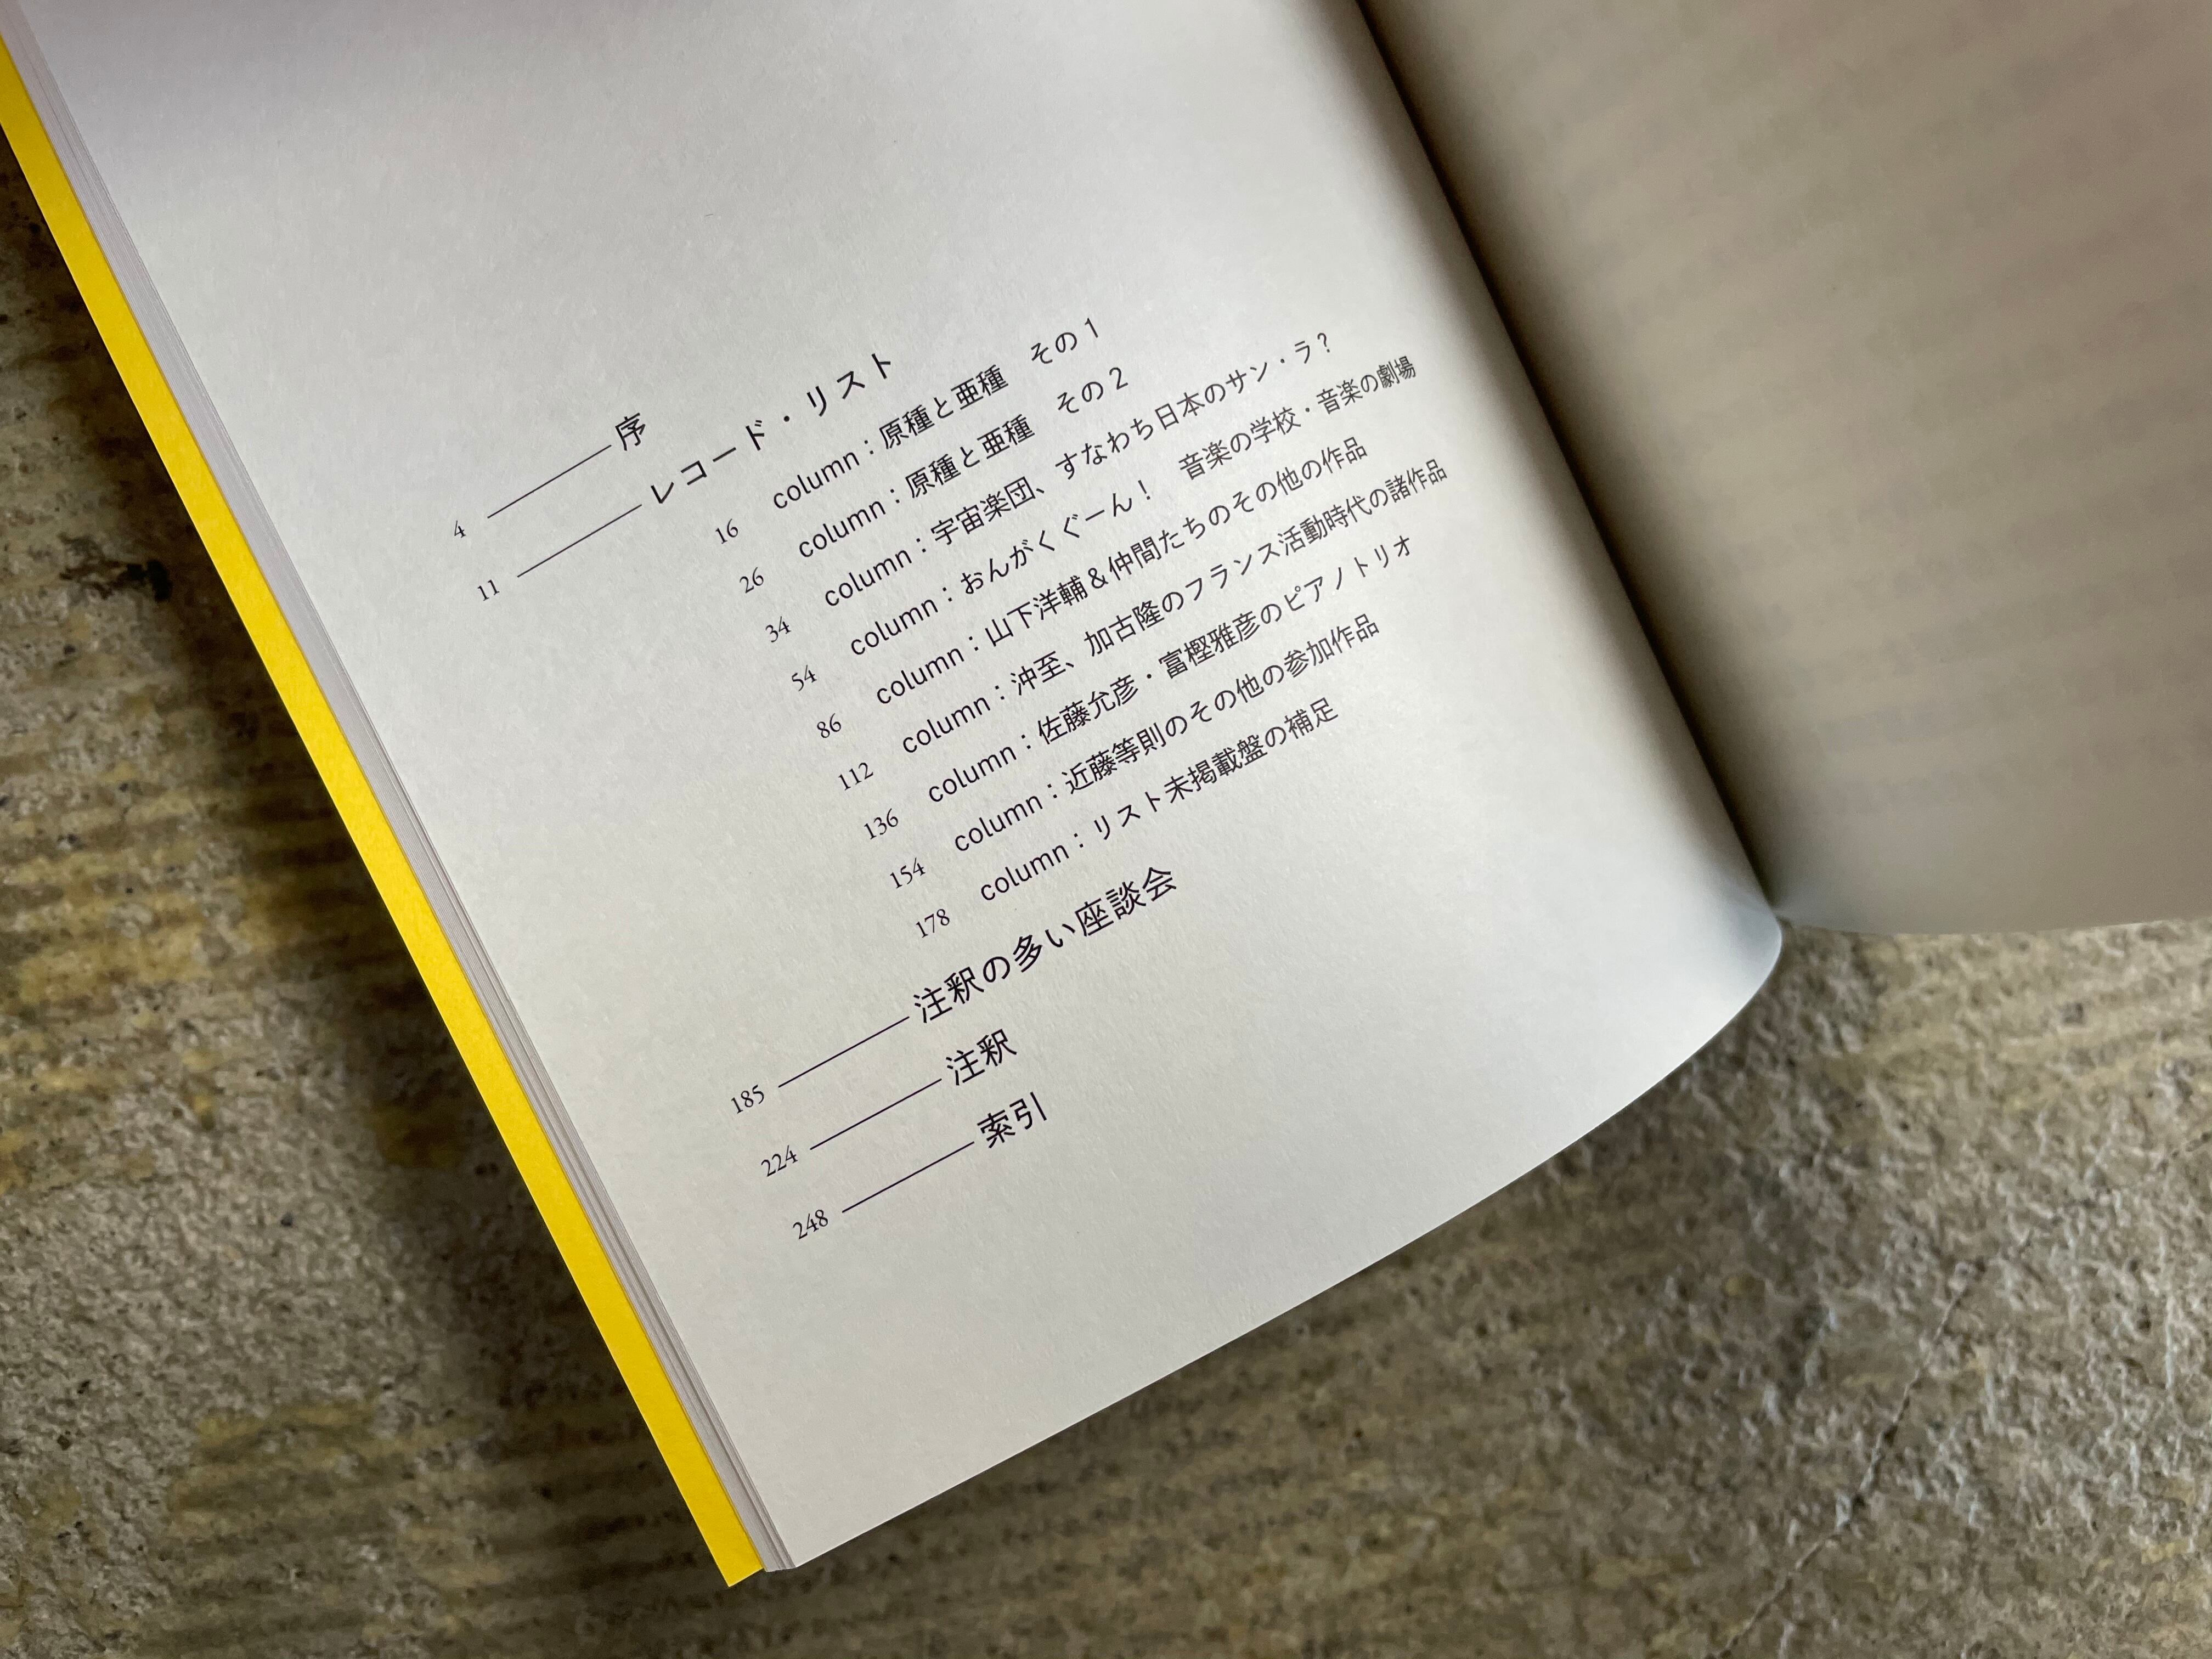 4 ── 序
11 ── レコード・リスト
16 column：原種と亜種　その1
26 column：原種と亜種　その2
34 column：宇宙楽団、すなわち日本のサン・ラ？
54 column：おんがくぐーん！　音楽の学校・音楽の劇場
86 column：山下洋輔＆仲間たちのその他の作品
112 column：沖至、加古隆のフランス活動時代の諸作品
136 column：佐藤允彦・富樫雅彦のピアノトリオ
154 column：近藤等則のその他の参加作品
178 column：リスト未掲載盤の補足
185 ── 注釈の多い座談会
224 ── 注釈
248 ── 索引